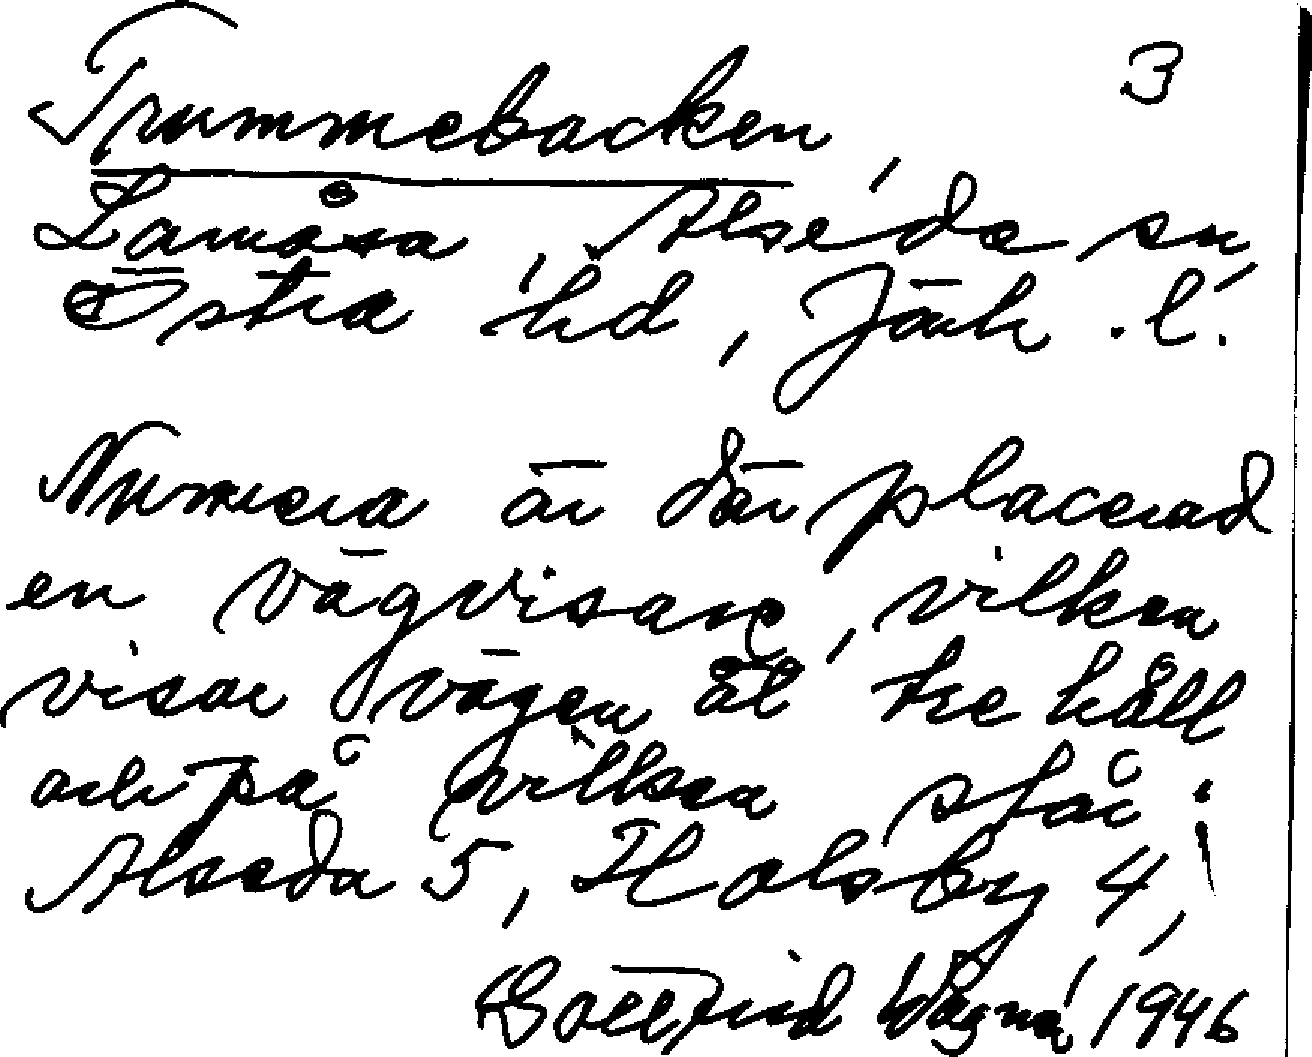 3
Trummebacken,
Lamåsa, Alseda sn,
Östra hd, Jönk. l.
Numera är där placerad
en vägvisare, vilken
visar vägen åt tre håll
och på vilken står:
Alseda 5, Holsby 4,
Gottfrid Wågnå, 1946